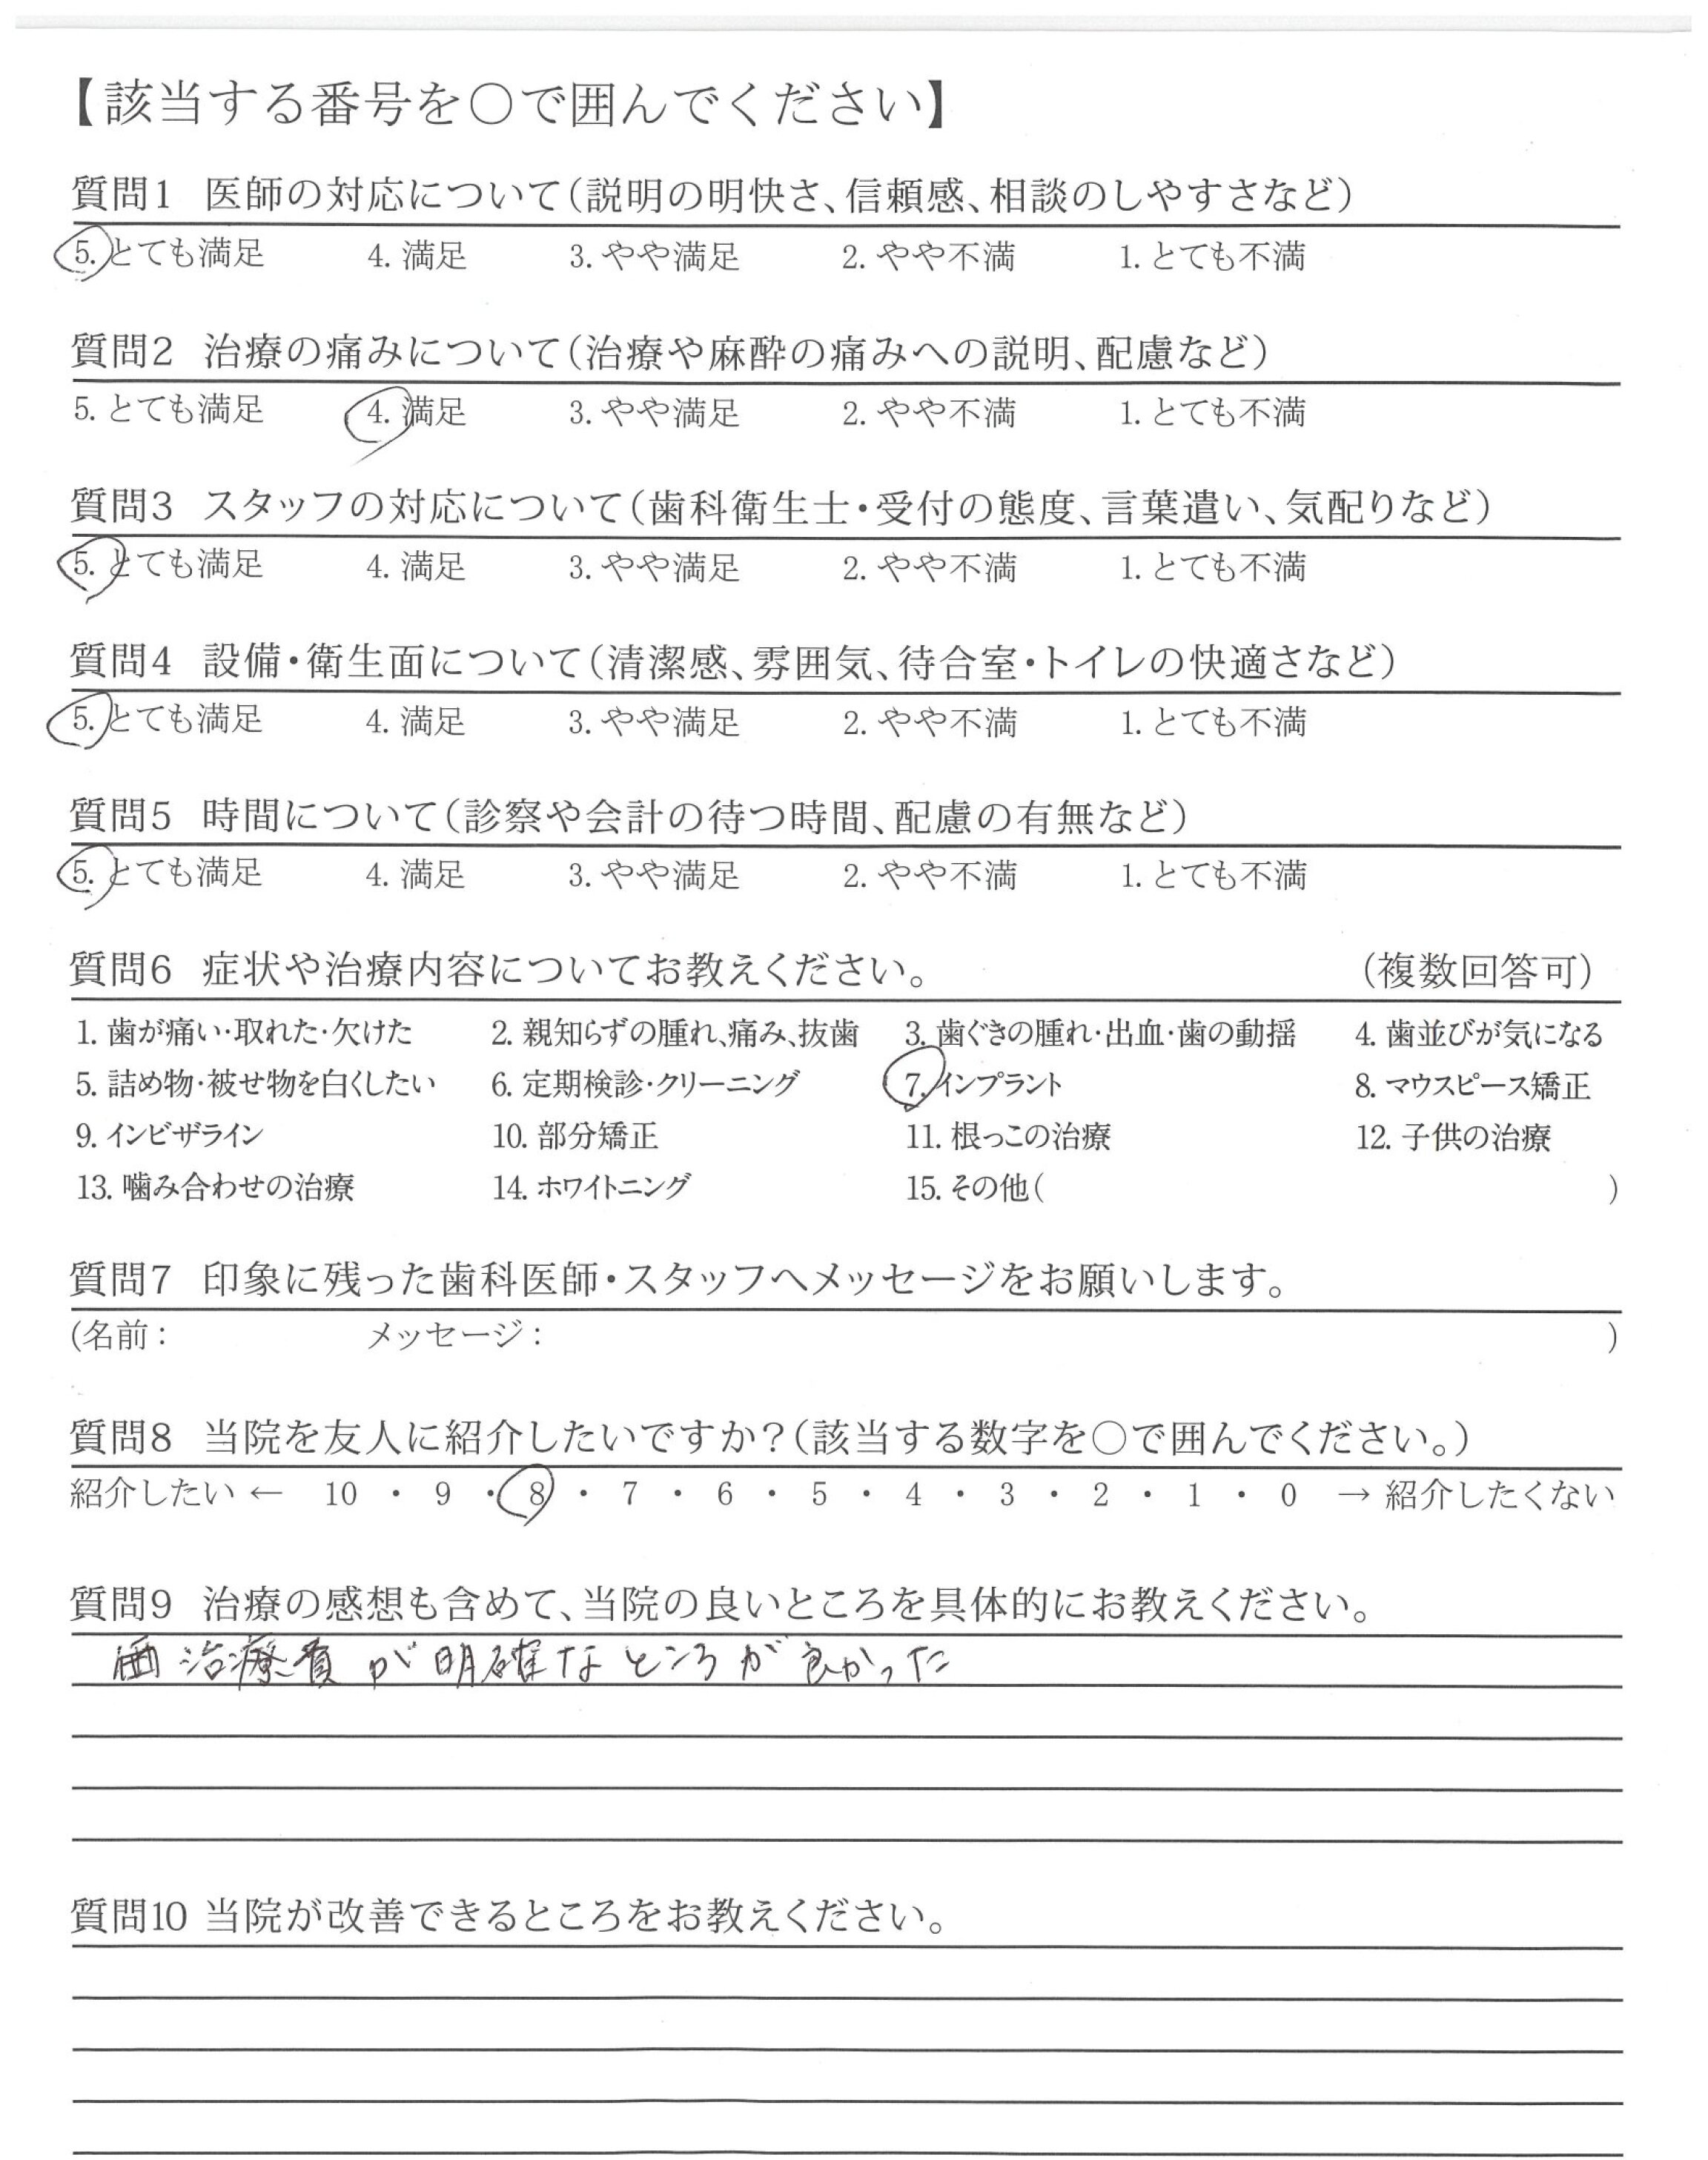 【該当する番号を○で囲んでください】
質問1 医師の対応について（説明の明快さ、信頼感、相談のしやすさなど）
5. とても満足 4. 満足 3. やや満足 2. やや不満 1. とても不満
質問2 治療の痛みについて（治療や麻酔の痛みへの説明、配慮など）
5. とても満足 4. 満足 3. やや満足 2. やや不満 1. とても不満
質問3 スタッフの対応について（歯科衛生士・受付の態度、言葉遣い、気配りなど）
5. とても満足 4. 満足 3. やや満足 2. やや不満 1. とても不満
質問4 設備・衛生面について（清潔感、雰囲気、待合室・トイレの快適さなど）
5. とても満足 4. 満足 3. やや満足 2. やや不満 1. とても不満
質問5 時間について（診察や会計の待つ時間、配慮の有無など）
5. とても満足 4. 満足 3. やや満足 2. やや不満 1. とても不満
質問6 症状や治療内容についてお教えください。 （複数回答可）
1. 歯が痛い・取れた・欠けた 2. 親知らずの腫れ、痛み、抜歯 3. 歯ぐきの腫れ・出血・歯の動揺 4. 歯並びが気になる
5. 詰め物・被せ物を白くしたい 6. 定期検診・クリーニング 7. インプラント 8. マウスピース矯正
9. インビザライン 10. 部分矯正 11. 根っこの治療 12. 子供の治療
13. 噛み合わせの治療 14. ホワイトニング 15. その他（ ）
質問7 印象に残った歯科医師・スタッフへメッセージをお願いします。
（名前： メッセージ： ）
質問8 当院を友人に紹介したいですか？（該当する数字を○で囲んでください。）
紹介したい ← 10 ・ 9 ・ 8 ・ 7 ・ 6 ・ 5 ・ 4 ・ 3 ・ 2 ・ 1 ・ 0 → 紹介したくない
質問9 治療の感想も含めて、当院の良いところを具体的にお教えください。
治療費が明確なところが良かった
質問10 当院が改善できるところをお教えください。